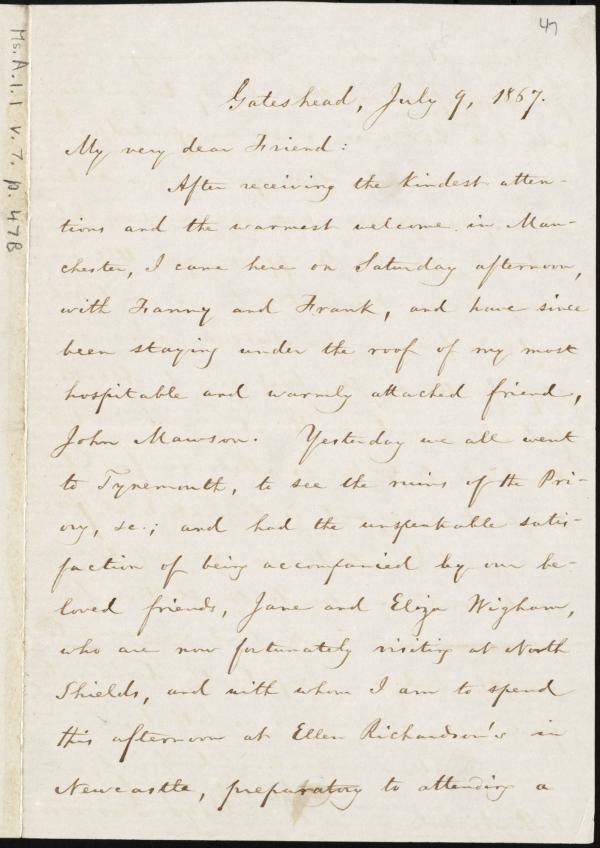 47
Ms. A. 1. 1 v. 7, p. 47B
Gateshead, July 9, 1867.
My very dear Friend:
After receiving the kindest atten-
tions and the warmest welcome in Man-
chester, I came here on Saturday afternoon,
with Fanny and Frank, and have since
been staying under the roof of my most
hospitable and warmly attached friend,
John Mawson. Yesterday we all went
to Tynemouth, to see the ruins of the Pri-
ory, &c.; and had the unspeakable satis-
faction of being accompanied by our be-
loved friends, Jane and Eliza Wigham,
who are now fortunately visiting at North
Shields, and with whom I am to spend
this afternoon at Ellen Richardson's in
Newcastle, preparatory to attending a